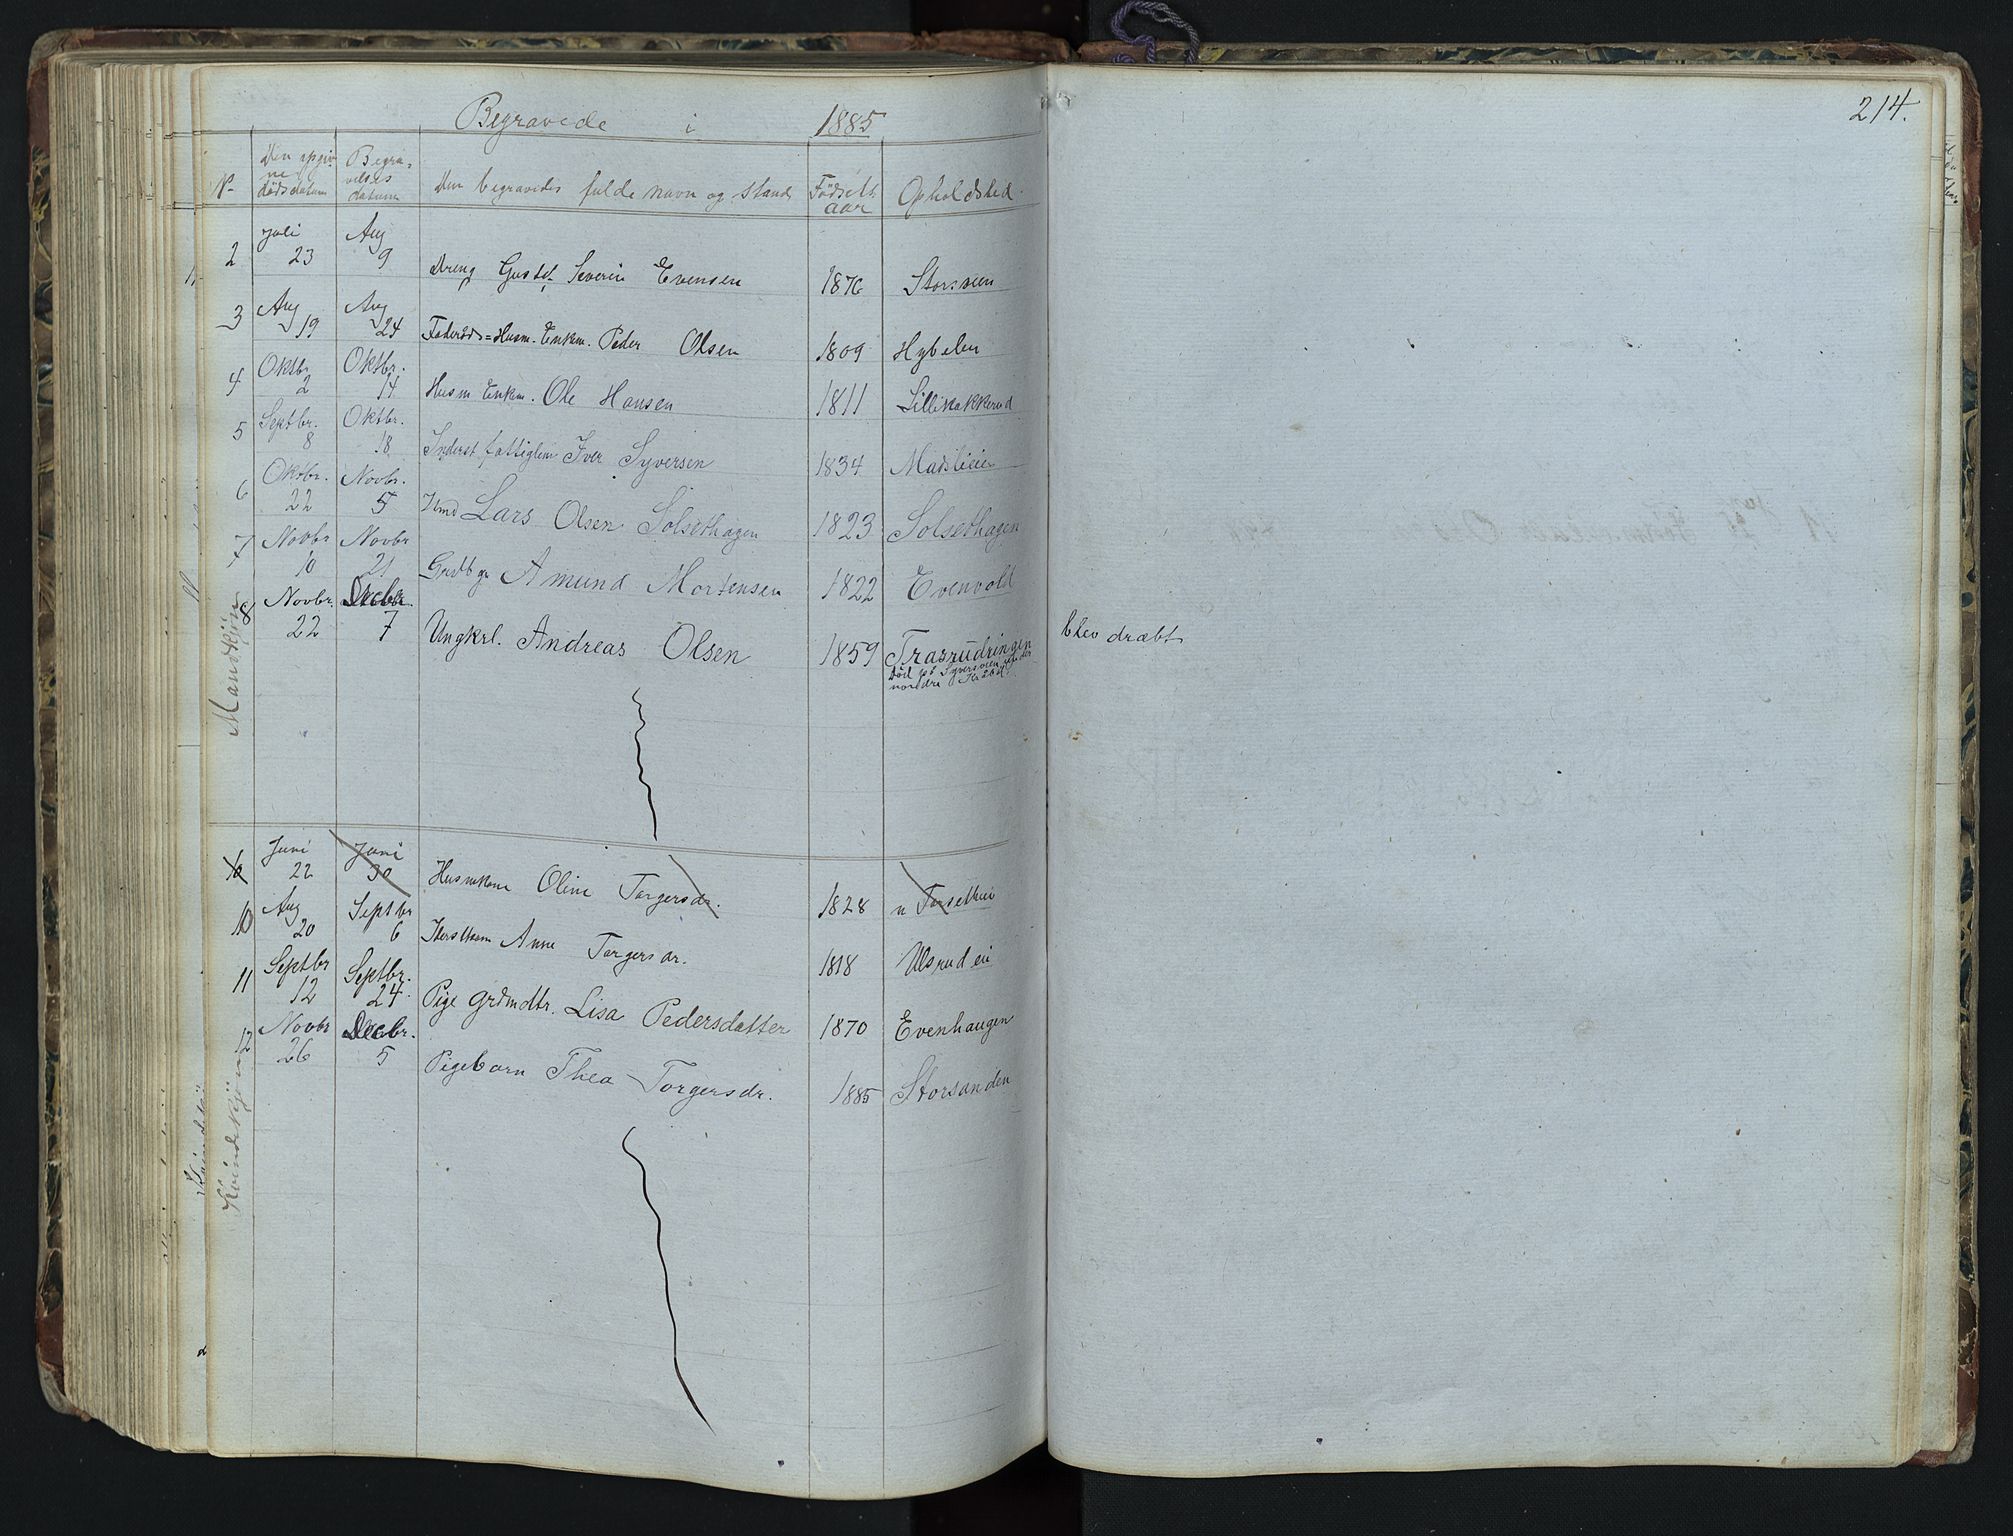 Begravede i 1885
214.
N. Den opgivne dødsdatum Begravelses datum Den begravedes fulde navn og stand Fødsels aar Opholdssted
Mandkjøn
2 Juli 23 Aug 9 Dreng Gustav Severin Evensen 1876 Storsveen
3 Aug 19 Aug 24 Føderåds=Husm. Enkem. Peder Olsen 1809 Hybelen
4 Oktbr 2 Oktbr. 14 Husm Enkem. Ole Hansen 1811 Lillehakkerud
5 Septbr. 8 Oktbr. 18 Inderst fattiglem Iver Syversen 1834 Madslieie
6 Oktbr. 22 Novbr. 5 Lars Olsen Solsethagen 1823 Solsethagen
7 Novbr 10 Novbr 21 Gårdbgr Amund Mortensen 1822 Evenvold
8 Novbr. 22 Decbr. 7 Ungkrl. Andreas Olsen 1859 Trasrudringen
Død på Syversveen
nordre
blev dræbt
Kvindekjøn
Juni 22 Juni 30 Huskone Oline Torgersdr. 1828 n Torsethei
10 Aug 20 Septbr 6 Anne Torgersdr. 1818 Ulsrudei
11 Septbr 12 Septbr. 24 Pige grdmdtr. Lisa Pedersdatter 1870 Evenhaugen
12 Novbr 26 Decbr. 5 Pigebarn Thea Torgersdr. 1885 Storsanden